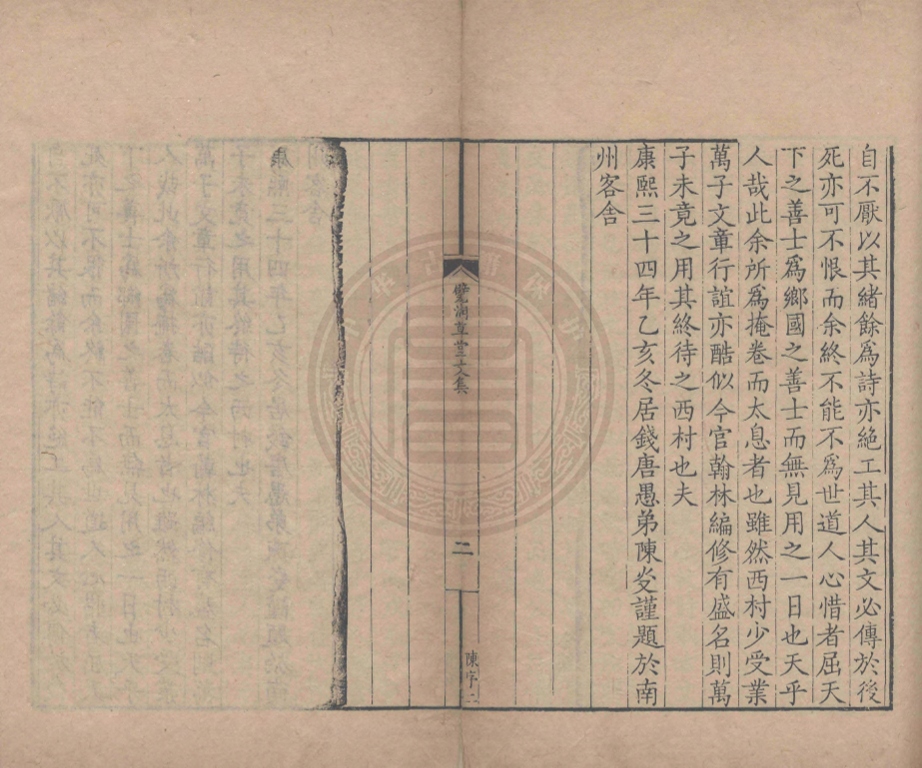 自不厭以其緒餘為詩亦絶工其人其文必傳於後
死亦可不恨而余終不能不為世道人心惜者屈天
下之善士為鄉國之善士而無見用之一日也天乎
人哉此余所為掩卷而太息者也雖然西村少受業
萬子文章行誼亦酷似今官翰林編修有盛名則萬
子未竟之用其終待之西村也夫
康熙三十四年乙亥冬居錢唐愚弟陳炎謹題於南
州客舍
躄澗草堂文集
二
陳序二